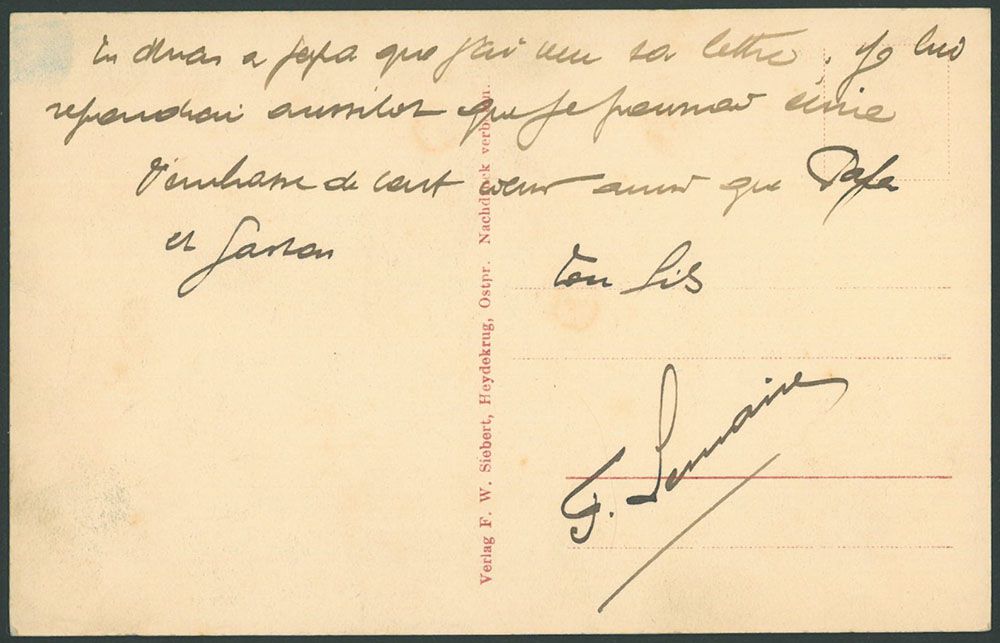 tu diras a papa que j'ai reçu sa lettre. Je lui
repondrai aussitot que je pourrai
T'embrasse de tout coeur ainsi que Papa
et Gaston
ton fils
F. Lemaire
Verlag F. W. Siebert, Heydekrug, Ostpr. Nachdruck verboten.